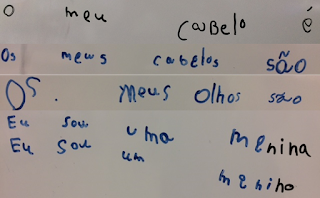 O meu CABELO é
Os meus cabelos são
OS. Meus olhos são
Eu sou uma menina
Eu sou um menino